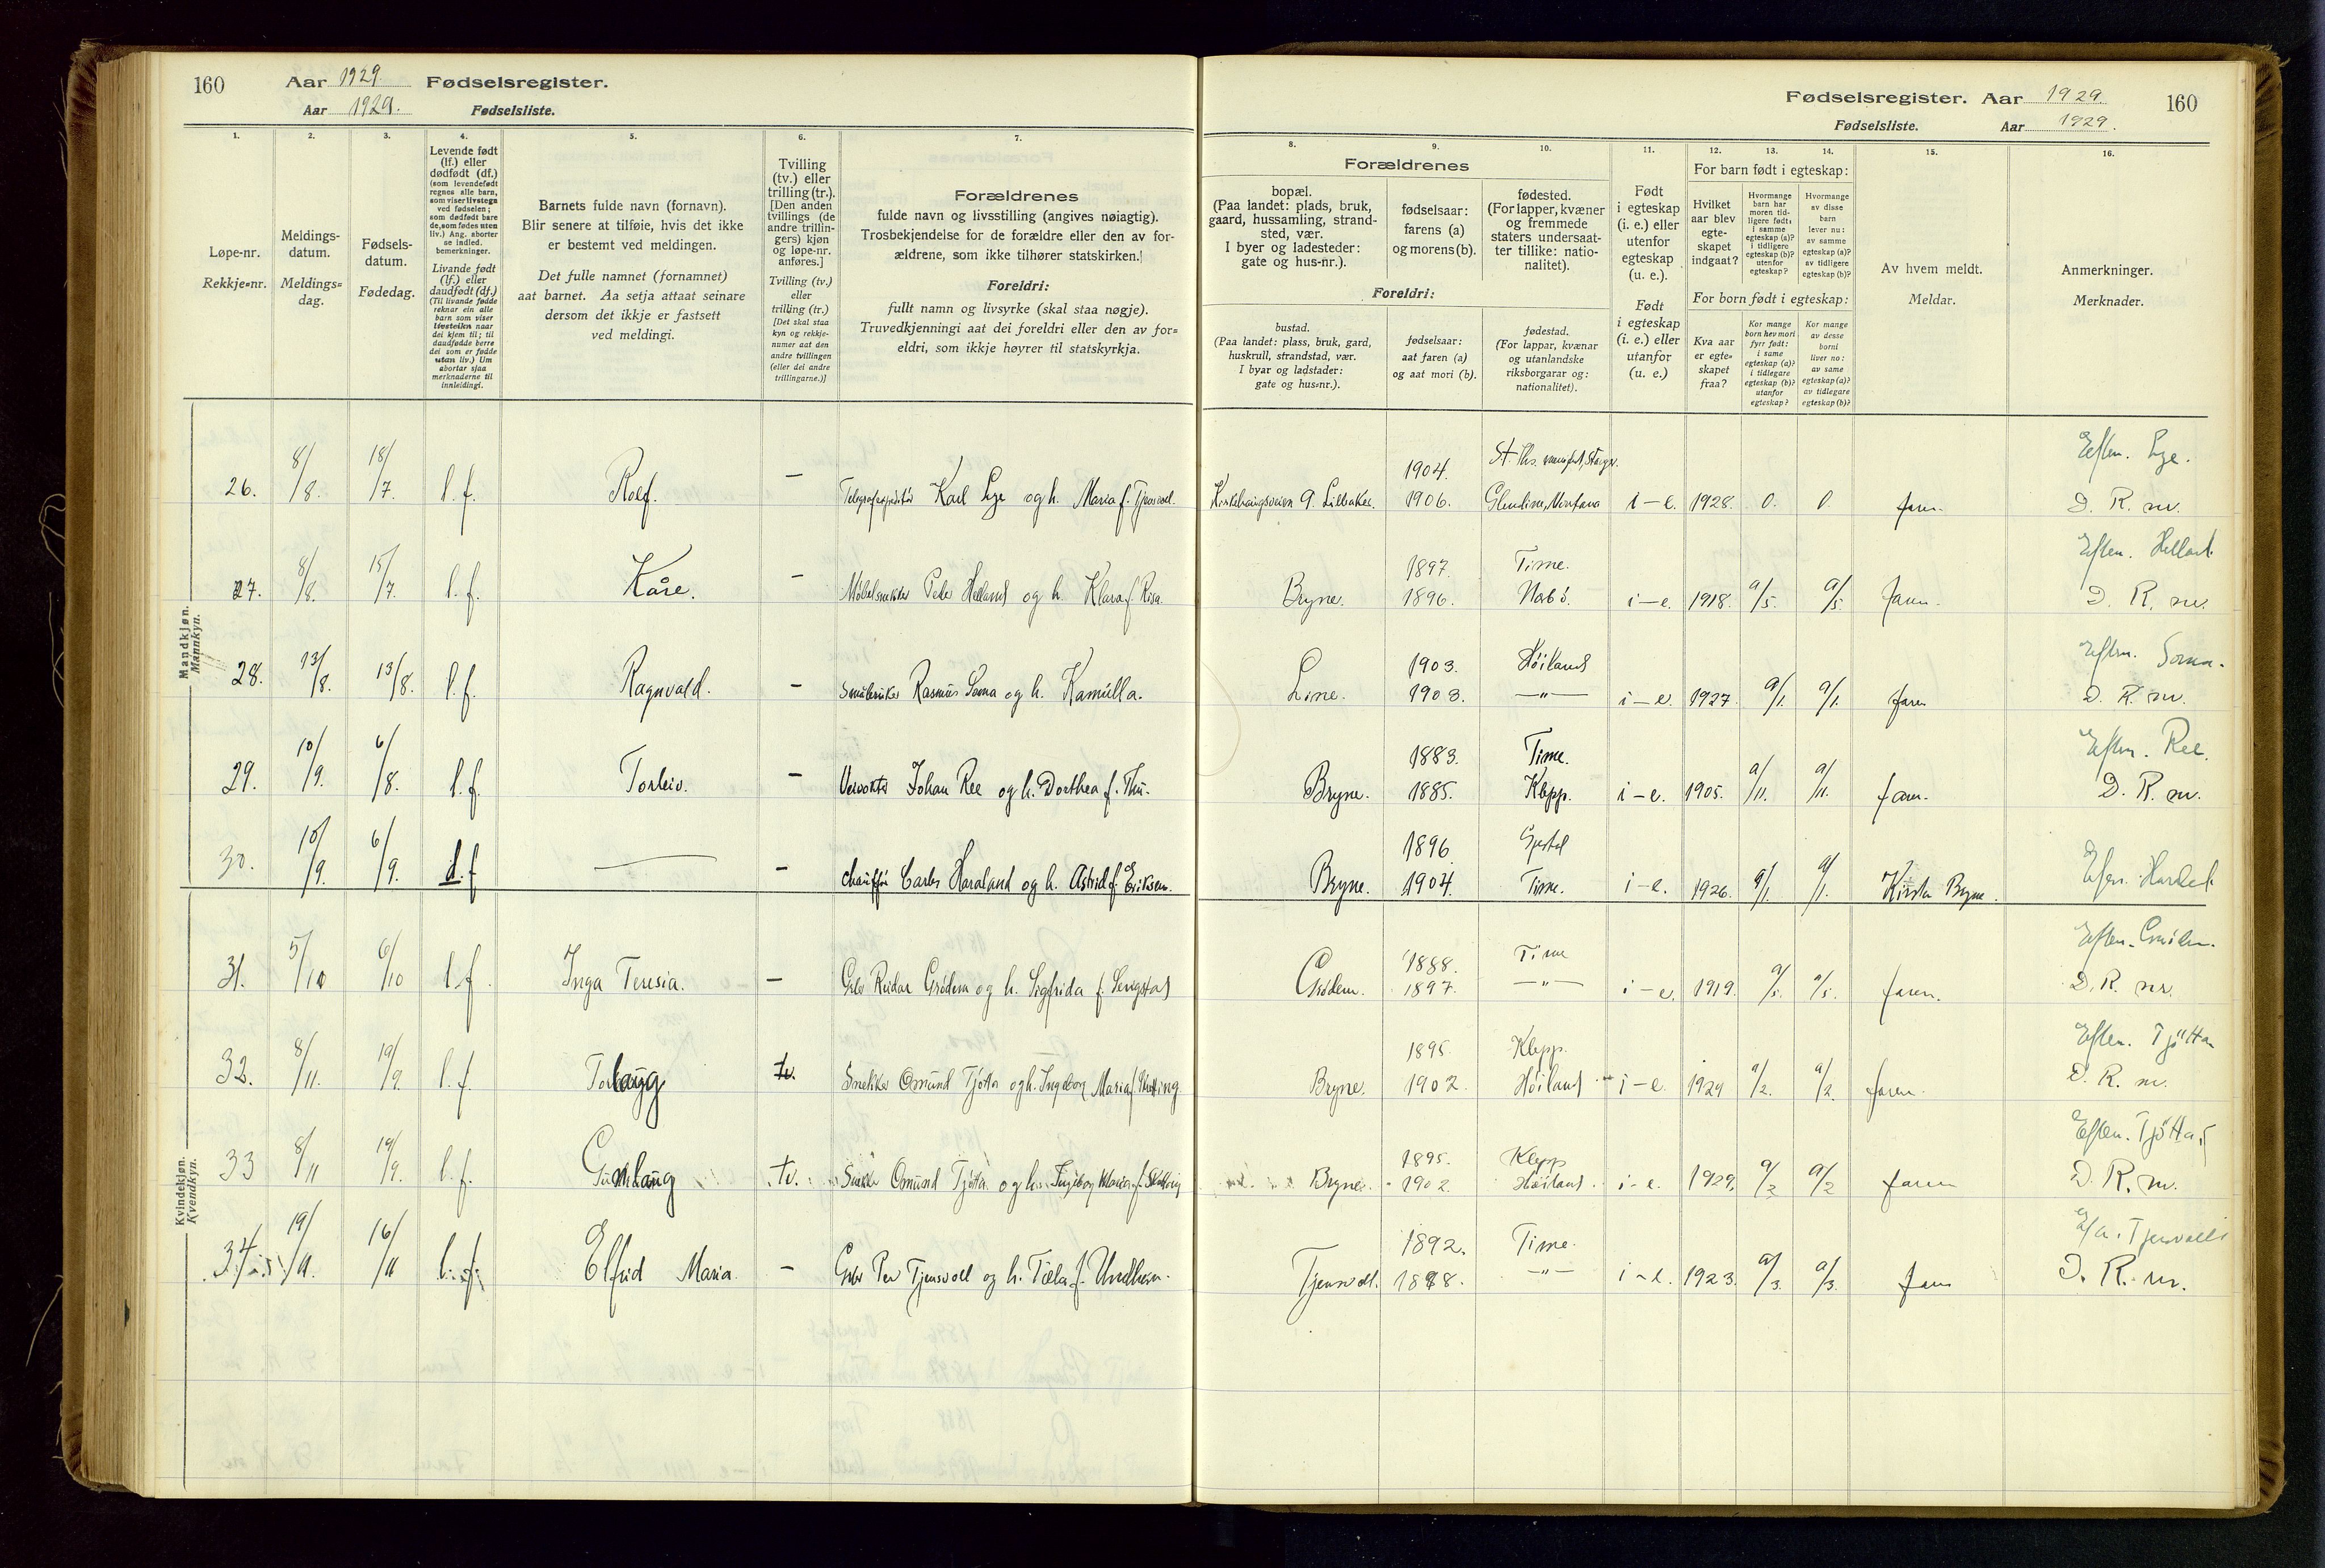 160 Aar 1929. Fødselsregister.
Aar 1929. Fødselsliste.
Fødselsregister. Aar 1929. 160
Fødselsliste. Aar 1929.
1. 2. 3. 4. 5. 6. 7. 8. 9. 10. 11. 12. 13. 14. 15. 16.
Løpe-nr.
Rekkje=nr.
Meldings-
datum.
Meldings=
dag.
Fødsels-
datum.
Fødedag.
Levende født
(lf.) eller
dødfødt (df.)
(som levendefødt
regnes alle barn,
som viser livstegn
ved fødselen;
som dødfødt bare
de, som fødes uten
liv.) Ang. aborter
se indled.
bemerkninger.
Livande født
(lf.) eller
daudfødt (df.)
(Til livande fødde
reknar ein alle
barn som viser
livsteikn naar
dei kjem til; til
daudfødde berre
dei som er fødde
utan liv.) Um
abortar sjaa
merknaderne til
innleidingi.
Barnets fulde navn (fornavn).
Blir senere at tilføie, hvis det ikke
er bestemt ved meldingen.
Det fulle namnet (fornamnet)
aat barnet. Aa setja attaat seinare
dersom det ikkje er fastsett
ved meldingi.
Tvilling
(tv.) eller
trilling (tr.).
[Den anden
tvillings (de
andre trillin-
gers) kjøn
og løpe-nr.
anføres.]
Tvilling (tv.)
eller
trilling (tr.)
[Det skal staa
kyn og rekkje-
numer aat den
andre tvillingen
(eller dei andre
trillingarne.)]
Forældrenes
fulde navn og livsstilling (angives nøiagtig).
Trosbekjendelse for de forældre eller den av for-
ældrene, som ikke tilhører statskirken.
Foreldri:
fullt namn og livsyrke (skal staa nøgje).
Truvedkjenningi aat dei foreldri eller den av for=
eldri, som ikkje høyrer til statskyrkja.
Forældrenes
bopæl.
(Paa landet: plads, bruk,
gaard, hussamling, strand-
sted, vær.
I byer og ladesteder:
gate og hus-nr.).
fødselsaar:
farens (a)
og morens (b).
fødested.
(For lapper, kvæner
og fremmede
staters undersaat-
ter tillike: natio-
nalitet).
Foreldri:
bustad.
(Paa landet: plass, bruk, gard,
huskrull, strandstad, vær.
I byar og ladstader:
gate og hus=nr.).
fødselsaar:
aat faren (a)
og aat mori (b).
fødestad.
(For lappar, kvænar
og utanlandske
riksborgarar og:
nationalitet).
Født
i egteskap
(i. e.) eller
utenfor
egteskap
(u. e.).
Født
i egteskap
(i. e.) eller
utanfor
(u. e.)
For barn født i egteskap:
Hvilket
aar blev
egte-
skapet
indgaat?
Hvormange
barn har
moren tid-
ligere født:
i samme
egteskap (a)?
i tidligere
egteskap (b)?
utenfor
egteskap?
Hvormange
av disse
barn
lever nu:
av samme
egteskap (a)?
av tidligere
egteskap (b)?
For born født i egteskap:
Kva aar
er egte=
skapet
fraa?
Kor mange
born hev mori
fyrr født:
i same
egteskap (a)?
i tidlegare
egteskap (b)?
utanfor
egteskap?
Kor mange
av desse
borni
liver no:
av same
egteskap (a)?
av tidlegare
egteskap (b)?
Av hvem meldt.
Meldar.
Anmerkninger.
Merknader.
Mandkjøn.
Mannkyn.
26. 8/8. 18/7. l. f. Rolf. — Karl Lye og h. Maria f. Tjensvol. 1904. 1906. i-e. 1928. 0. 0. faren. Eftn. Lye. D. R. nr.
27. 8/8. 15/7. l. f. Kåre. — Møbelsnekker Peder Helland og h. Klara f. Risa. Bryne. 1897. 1896. Time. Nærbø. i-e. 1918. a/5. a/5. faren. Eftn. Helland D. R. nr.
28. 13/8. 13/8. l. f. Ragnvald. — Småbruker Rasmus Soma og h. Kamilla. Line. 1903. 1903. Höiland —"— i-e. 1927. a/1. a/1. faren Eftn. Soma. D. R. nr.
29. 10/9. 6/8. l. f. Torleiv. — Veivokter Johan Ree og h. Dorthea f. Thu. Bryne. 1883. 1885. Time. Klepp. i-e. 1905. a/11. a/11. faren. Eftn. Ree. D. R. nr.
30. 10/9. 6/9. d. f — chauffør Carles Haraland og h. Astrid f. Eriksen. Bryne. 1896. 1904. Gjestal Time. i-e. 1926. a/1. a/1. Bryne.
Kvindekjøn.
Kvendkyn.
31. 5/10 6/10 l. f. Inga Teresia. — Gbr. Reidar Grødem og h. Sigfrida f. Serigstad Grødem. 1888. 1897. Time —"— i-e. 1919. a/5. a/5. faren. D. R. nr.
32. 8/11. 19/9. l. f. Torlaug tv. Snekker Omund Tjøtta og h. Ingeborg Maria f. Bryne. 1895. 1902. Klepp. Höiland i-e. 1929 a/2. a/2. faren. Eftn. Tjötta D. R. nr.
33 8/11 19/9. l. f. Gunlaug tv. Snekker Omund Tjøtta og h. Ingeborg Maria f. Bryne. 1895. 1902. Klepp Höiland. i-e. 1929. a/2 a/2 faren Eftn. Tjötta D. R. nr.
34 19/11. 16/11 l. f. Elfrid Maria. — Gbr Per Tjensvoll og h. f. Undheim. Tjensvoll. 1892. Time. —"— i-e. 1923. a/3. a/3. faren Eftn. Tjensvoll D. R. nr.